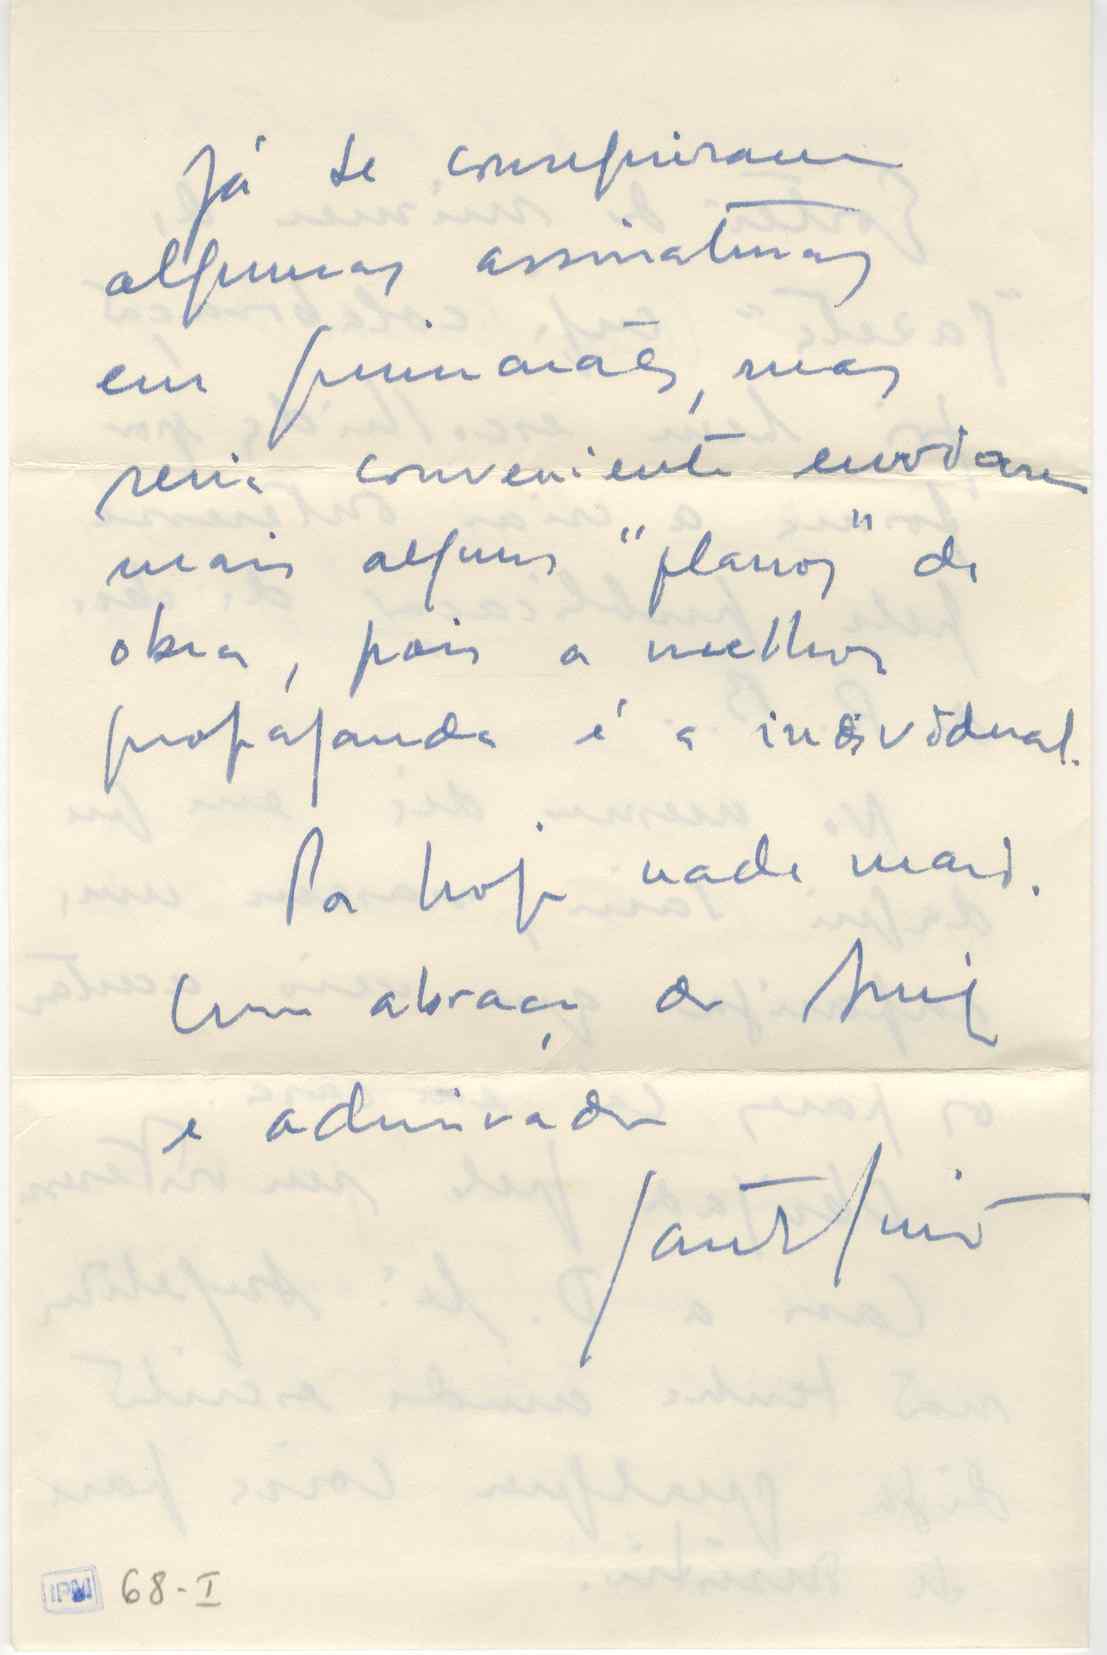 Já se conseguiram
algumas assinaturas
em Guimarães, mas
seria conveniente enviarem
mais alguns "planos" da
obra, pois a melhor
propaganda é a individual.
Por hoje nada mais.
Um abraço do amigo
e admirador
Santos Simões
IPM 68-I